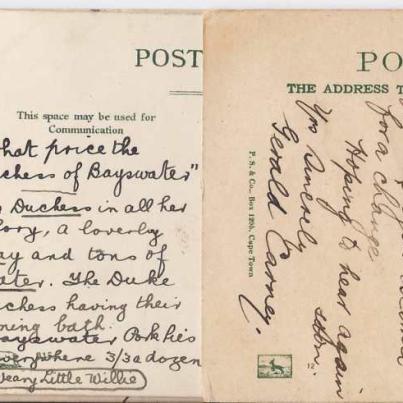 POST
This space may be used for
Communication
hat price the
chess of Bayswater"
Duchess in all her
lory, a loverly
ay and tons of
ater. The Duke
uchess having their
ning bath.
Bayswater Pork pies
everywhere 3/3 a dozen
Weary Little Willie
PO
THE ADDRESS T
for a change
Hoping to hear again
soon:
Yrs Sincerely
Gerald Carney.
P. S. & Co., Box 1295, Cape Town